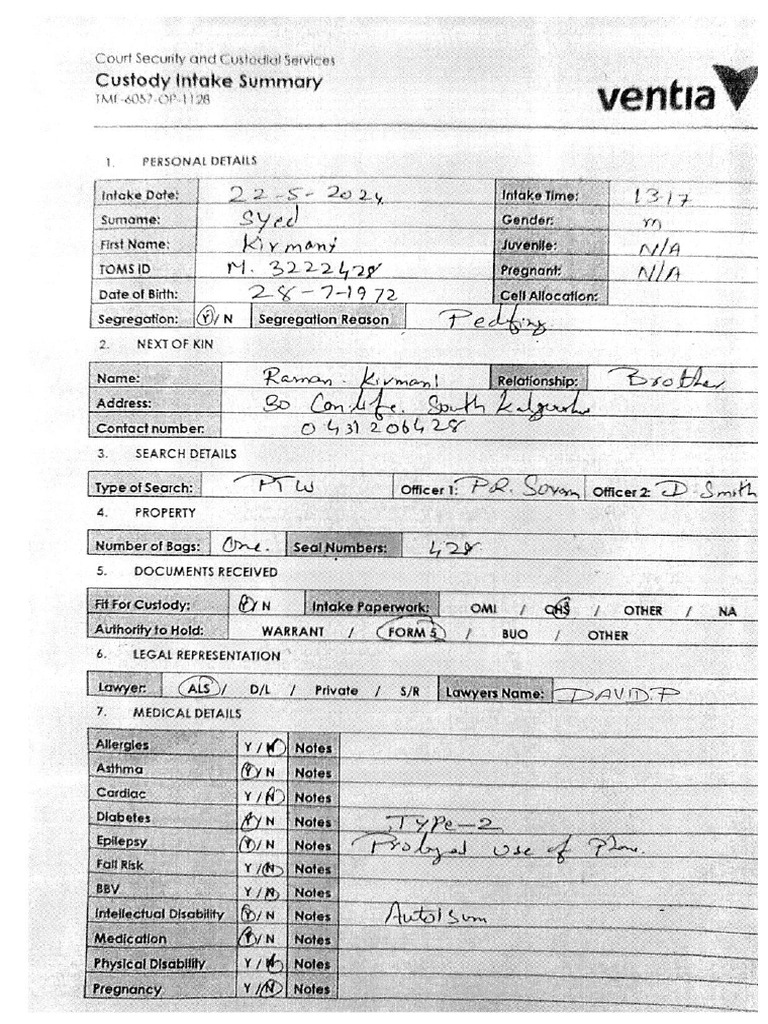 Court Security and Custodial Services
Custody Intake Summary
TMF-6057-OP-1128
ventia
1. PERSONAL DETAILS
Intake Date: 22-5-2024 Intake Time: 13.17
Surname: Syed Gender: m
First Name: Kirmani Juvenile: N/A
TOMS ID M. 3222428 Pregnant: N/A
Date of Birth: 28-7-1972 Cell Allocation:
Segregation: Y/ N Segregation Reason
2. NEXT OF KIN
Name: Raman. Kirmani Relationship: Brother
Address: 30 South Kalgoorlie
Contact number: 0431206428
3. SEARCH DETAILS
Type of Search: PTW Officer 1: P.R. Officer 2: D. Smith
4. PROPERTY
Number of Bags: One. Seal Numbers: 428
5. DOCUMENTS RECEIVED
Fit For Custody: Y/ N Intake Paperwork: OMI / OHS / OTHER / NA
Authority to Hold: WARRANT / FORM 5 / BUO / OTHER
6. LEGAL REPRESENTATION
Lawyer: ALS / D/L / Private / S/R Lawyers Name: DAVID.P
7. MEDICAL DETAILS
Allergies Y / N Notes
Asthma Y/ N Notes
Cardiac Y / N Notes
Diabetes Y/ N Notes TYPe-2
Epilepsy Y/ N Notes use of
Fall Risk Y / N Notes
BBV Y / N Notes
Intellectual Disability Y/ N Notes Autoisum
Medication Y/ N Notes
Physical Disability Y / N Notes
Pregnancy Y / N Notes